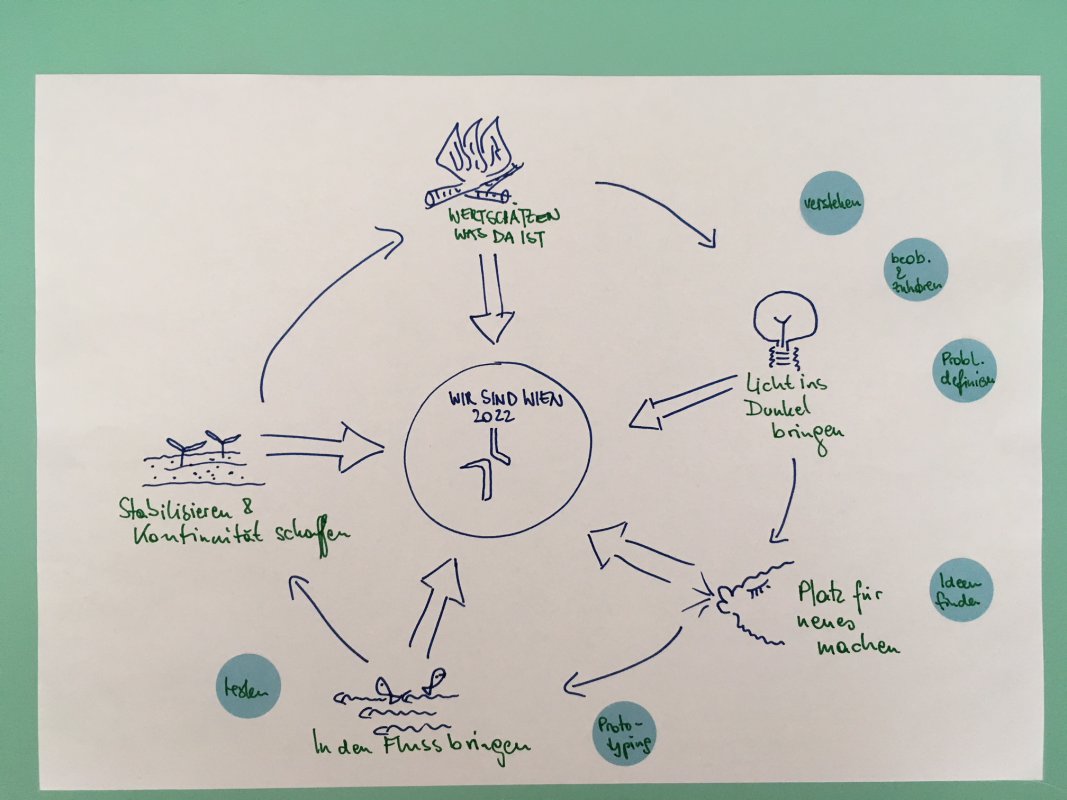 WERTSCHÄTZEN
WAS DA IST
verstehen
beob.
&
zuhören
Probl.
definieren
Licht ins
Dunkel
bringen
WIR SIND WIEN
2022
Stabilisieren &
Kontinuität schaffen
Platz für
neues
machen
Ideen
finden
testen
Proto-
typing
In den Fluss bringen